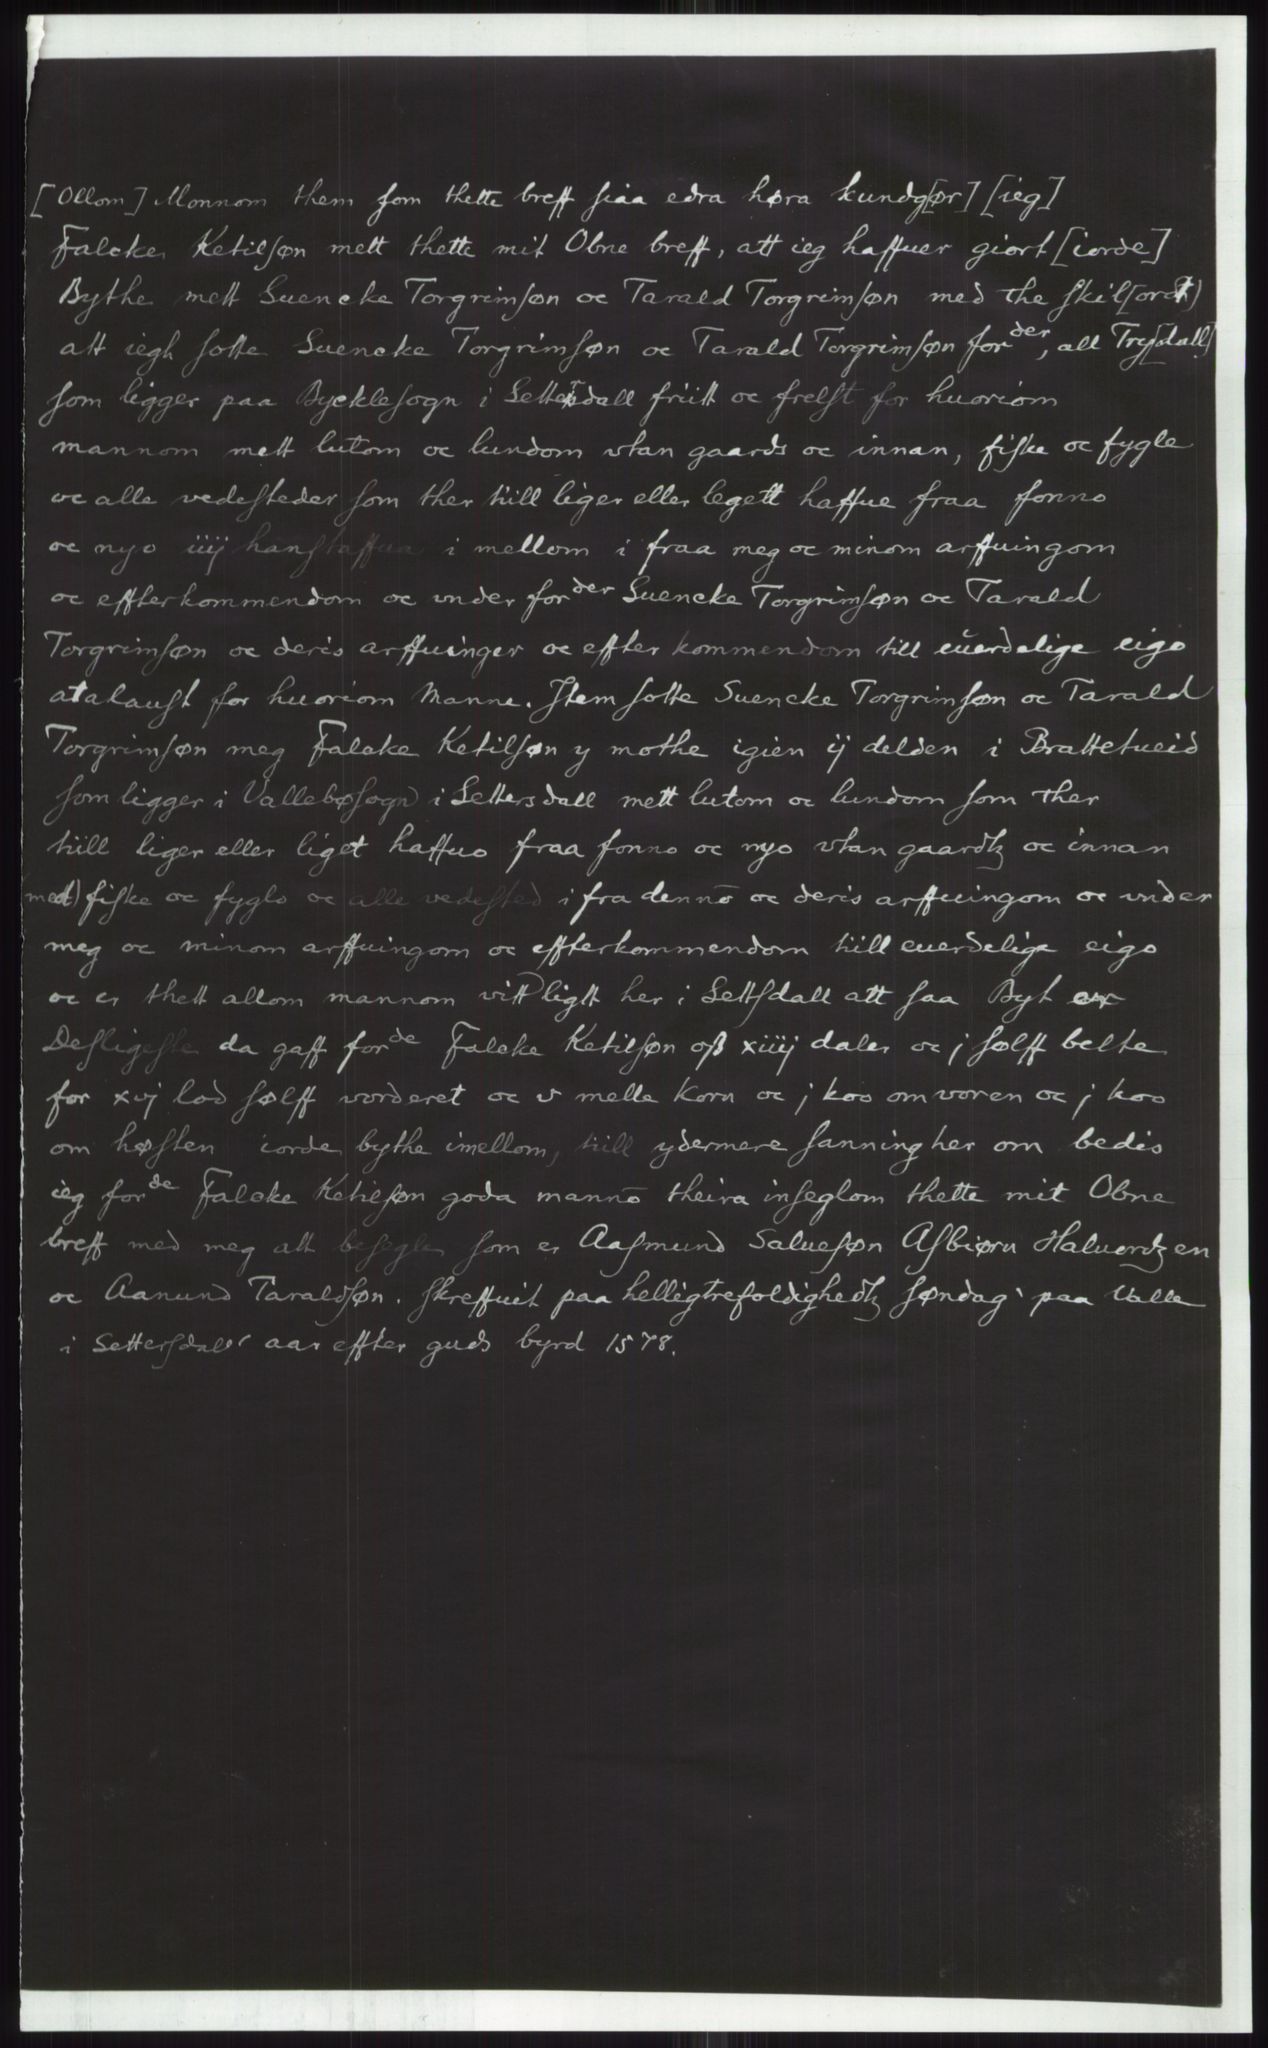 [Ollom] Monnom them som thette breff siaa edra høra kundg[ør] [ieg]
Falcke Ketilsøn mett thette mit Obne breff, att ieg haffuer giort [iorde]
Bythe mett Suencke Torgrimsøn oc Tarald Torgrimsøn med the skil[ordt)
att iegh sotte Suencke Torgrimsøn oc Tarald Torgrimsøn forder, all Trey[dall]
som ligger paa Bycklesogn i Settersdall friitt oc frelst for huoriom
mannom mett lutom oc lundom vtan gaards oc innan, fiske oc fygle
oc alle vedesteder som ther tiill liger eller legett haffue fraa fonno
oc nyo iiij hanstaffua i mellom i fraa meg oc minom arffuingom
oc effterkommendom oc vnder forder Suencke Torgrimsøn oc Tarald
Torgrimsøn oc deris arffuinger oc effter kommendom till euerdelige eigo
atalaust for huoriom Manne. Item sotte Suencke Torgrimsøn oc Tarald
Torgrimsøn meg Falcke Ketilsøn y mothe igien ij delden i Brattetueid
som ligger i Vallebøsogn i Settersdall mett lutom oc lundom som ther
tiill liger eller liget haffuo fraa fonno oc nyo vtan gaardtz oc innan
med) fiske oc fyglo oc alle vedested i fra dennō oc deris arffuingom oc vnder
meg oc minom arffuingom oc effterkommendom tiill euerdelige eigo
oc er thett allom mannom vittligtt her i Settsdall att saa Byt er
Desligeste da gaff forde Falcke Ketilsøn oß xiiij daler oc j sølff belte
for xvj lod sølff vorderet oc v melle Korn oc j koo om voren oc j koo
om høsten iorde bythe imellom, tiill ydermere sanning her om bedis
ieg forde Falcke Ketilsøn goda mannō theira inseglom thette mit Obne
breff med meg att besegle som er Aasmund Saluesøn Asbiørn Haluordtzen
oc Aanund Taraldsøn. skreffuit paa helligtrefoldighedtz søndag paa Valle
i Settersdal aar effter guds byrd 1578.